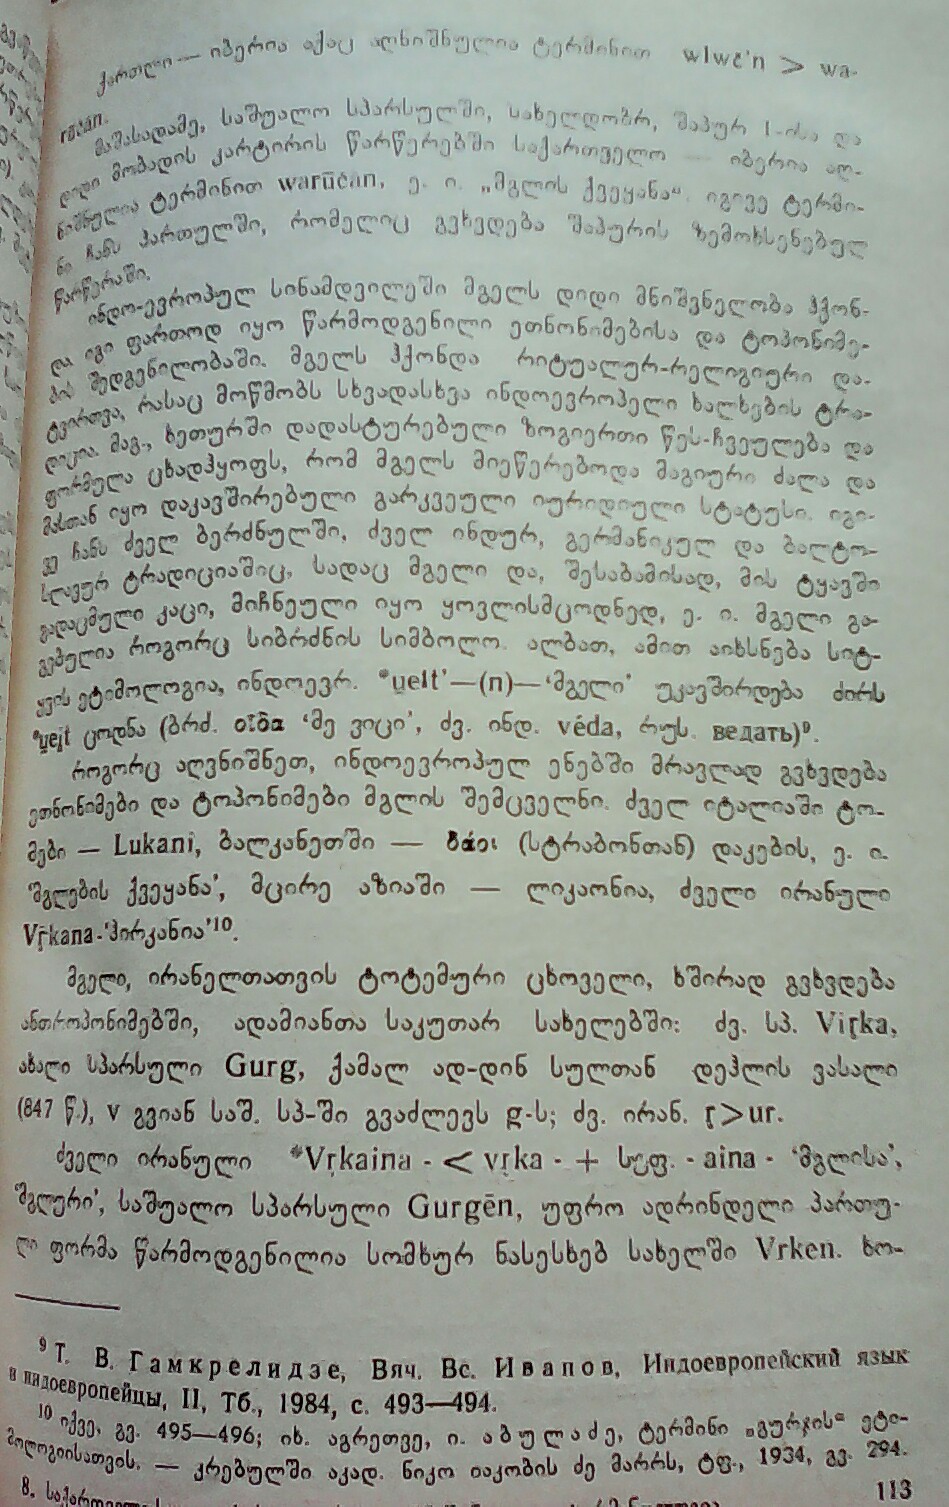 ქართლი — იბერია აქაც აღნიშნულია ტერმინით wlwč'n > wa-
rūčān.
მაშასადამე, საშუალო სპარსულში, სახელდობრ, შაპურ I-ისა და
დიდი მობადის კარტირის წარწერებში საქართველო — იბერია აღ-
ნიშნულია ტერმინით warūčan, ე. ი. „მგლის ქვეყანა“. იგივე ტერმი-
ნი ჩანს პართულში, რომელიც გვხვდება შაპურის ზემოხსენებულ
წარწერაში.
ინდო-ევროპულ სინამდვილეში მგელს დიდი მნიშვნელობა ჰქონ-
და იგი ფართოდ იყო წარმოდგენილი ეთნონიმებისა და ტოპონიმე-
ბის შედგენილობაში. მგელს ჰქონდა რიტუალურ-რელიგიური და-
ტვირთვა, რასაც მოწმობს სხვადასხვა ინდოევროპელი ხალხების ტრა-
დიცია. მაგ., ხეთურში დადასტურებული ზოგიერთი წეს-ჩვეულება და
ფორმულა ცხადჰყოფს, რომ მგელს მიეწერებოდა მაგიური ძალა და
მასთან იყო დაკავშირებული გარკვეული იურიდიული სტატუსი. იგი-
ვე ჩანს ძველ ბერძნულში, ძველ ინდურ, გერმანიკულ და ბალტო-
სლავურ ტრადიციაშიც, სადაც მგელი და, შესაბამისად, მის ტყავში
გადაცმული კაცი, მიჩნეული იყო ყოვლისმცოდნედ, ე. ი. მგელი გა-
გებულია როგორც სიბრძნის სიმბოლო. ალბათ, ამით აიხსნება სიტ-
ყვის ეტიმოლოგია, ინდოევრ. *u̯eit'—(n)—‘მგელი’ უკავშირდება ძირს
*u̯eit ცოდნა (ბრძ. οἶδα ‘მე ვიცი’, ძვ. ინდ. véda, რუს. ведать)⁹.
როგორც აღვნიშნეთ, ინდოევროპულ ენებში მრავლად გვხვდება
ეთნონიმები და ტოპონიმები მგლის შემცველნი. ძველ იტალიაში ტო-
მები — Lukani, ბალკანეთში — δάοι (სტრაბონთან) დაკების, ე. ი.
‘მგლების ქვეყანა’, მცირე აზიაში — ლიკაონია, ძველი ირანული
Vr̥kana-‘ჰირკანია’¹⁰.
მგელი, ირანელთათვის ტოტემური ცხოველი, ხშირად გვხვდება
ანთროპონიმებში, ადამიანთა საკუთარ სახელებში: ძვ. სპ. Vir̥ka,
ახალი სპარსული Gurg, ქამალ ად-დინ სულთან დეჰლის ვასალი
(847 წ.), v გვიან საშ. სპ-ში გვაძლევს g-ს; ძვ. ირან. r̥>ur.
ძველი ირანული *Vr̥kaina - < vr̥ka - + სუფ. - aina - ‘მგლისა’,
‘მგლური’, საშუალო სპარსული Gurgēn, უფრო ადრინდელი პართუ-
ლი ფორმა წარმოდგენილია სომხურ ნასესხებ სახელში Vrken. ხო-
⁹ Т. В. Гамкрелидзе, Вяч. Вс. Иванов, Индоевропейский язык
и индоевропейцы, II, Тб., 1984, с. 493—494.
¹⁰ იქვე, გვ. 495—496; იხ. აგრეთვე, ი. აბულაძე, ტერმინი „გურჯის“ ეტი-
მოლოგიისათვის. — კრებულში აკად. ნიკო იაკობის ძე მარრს, ტფ., 1934, გვ. 294.
113
8.